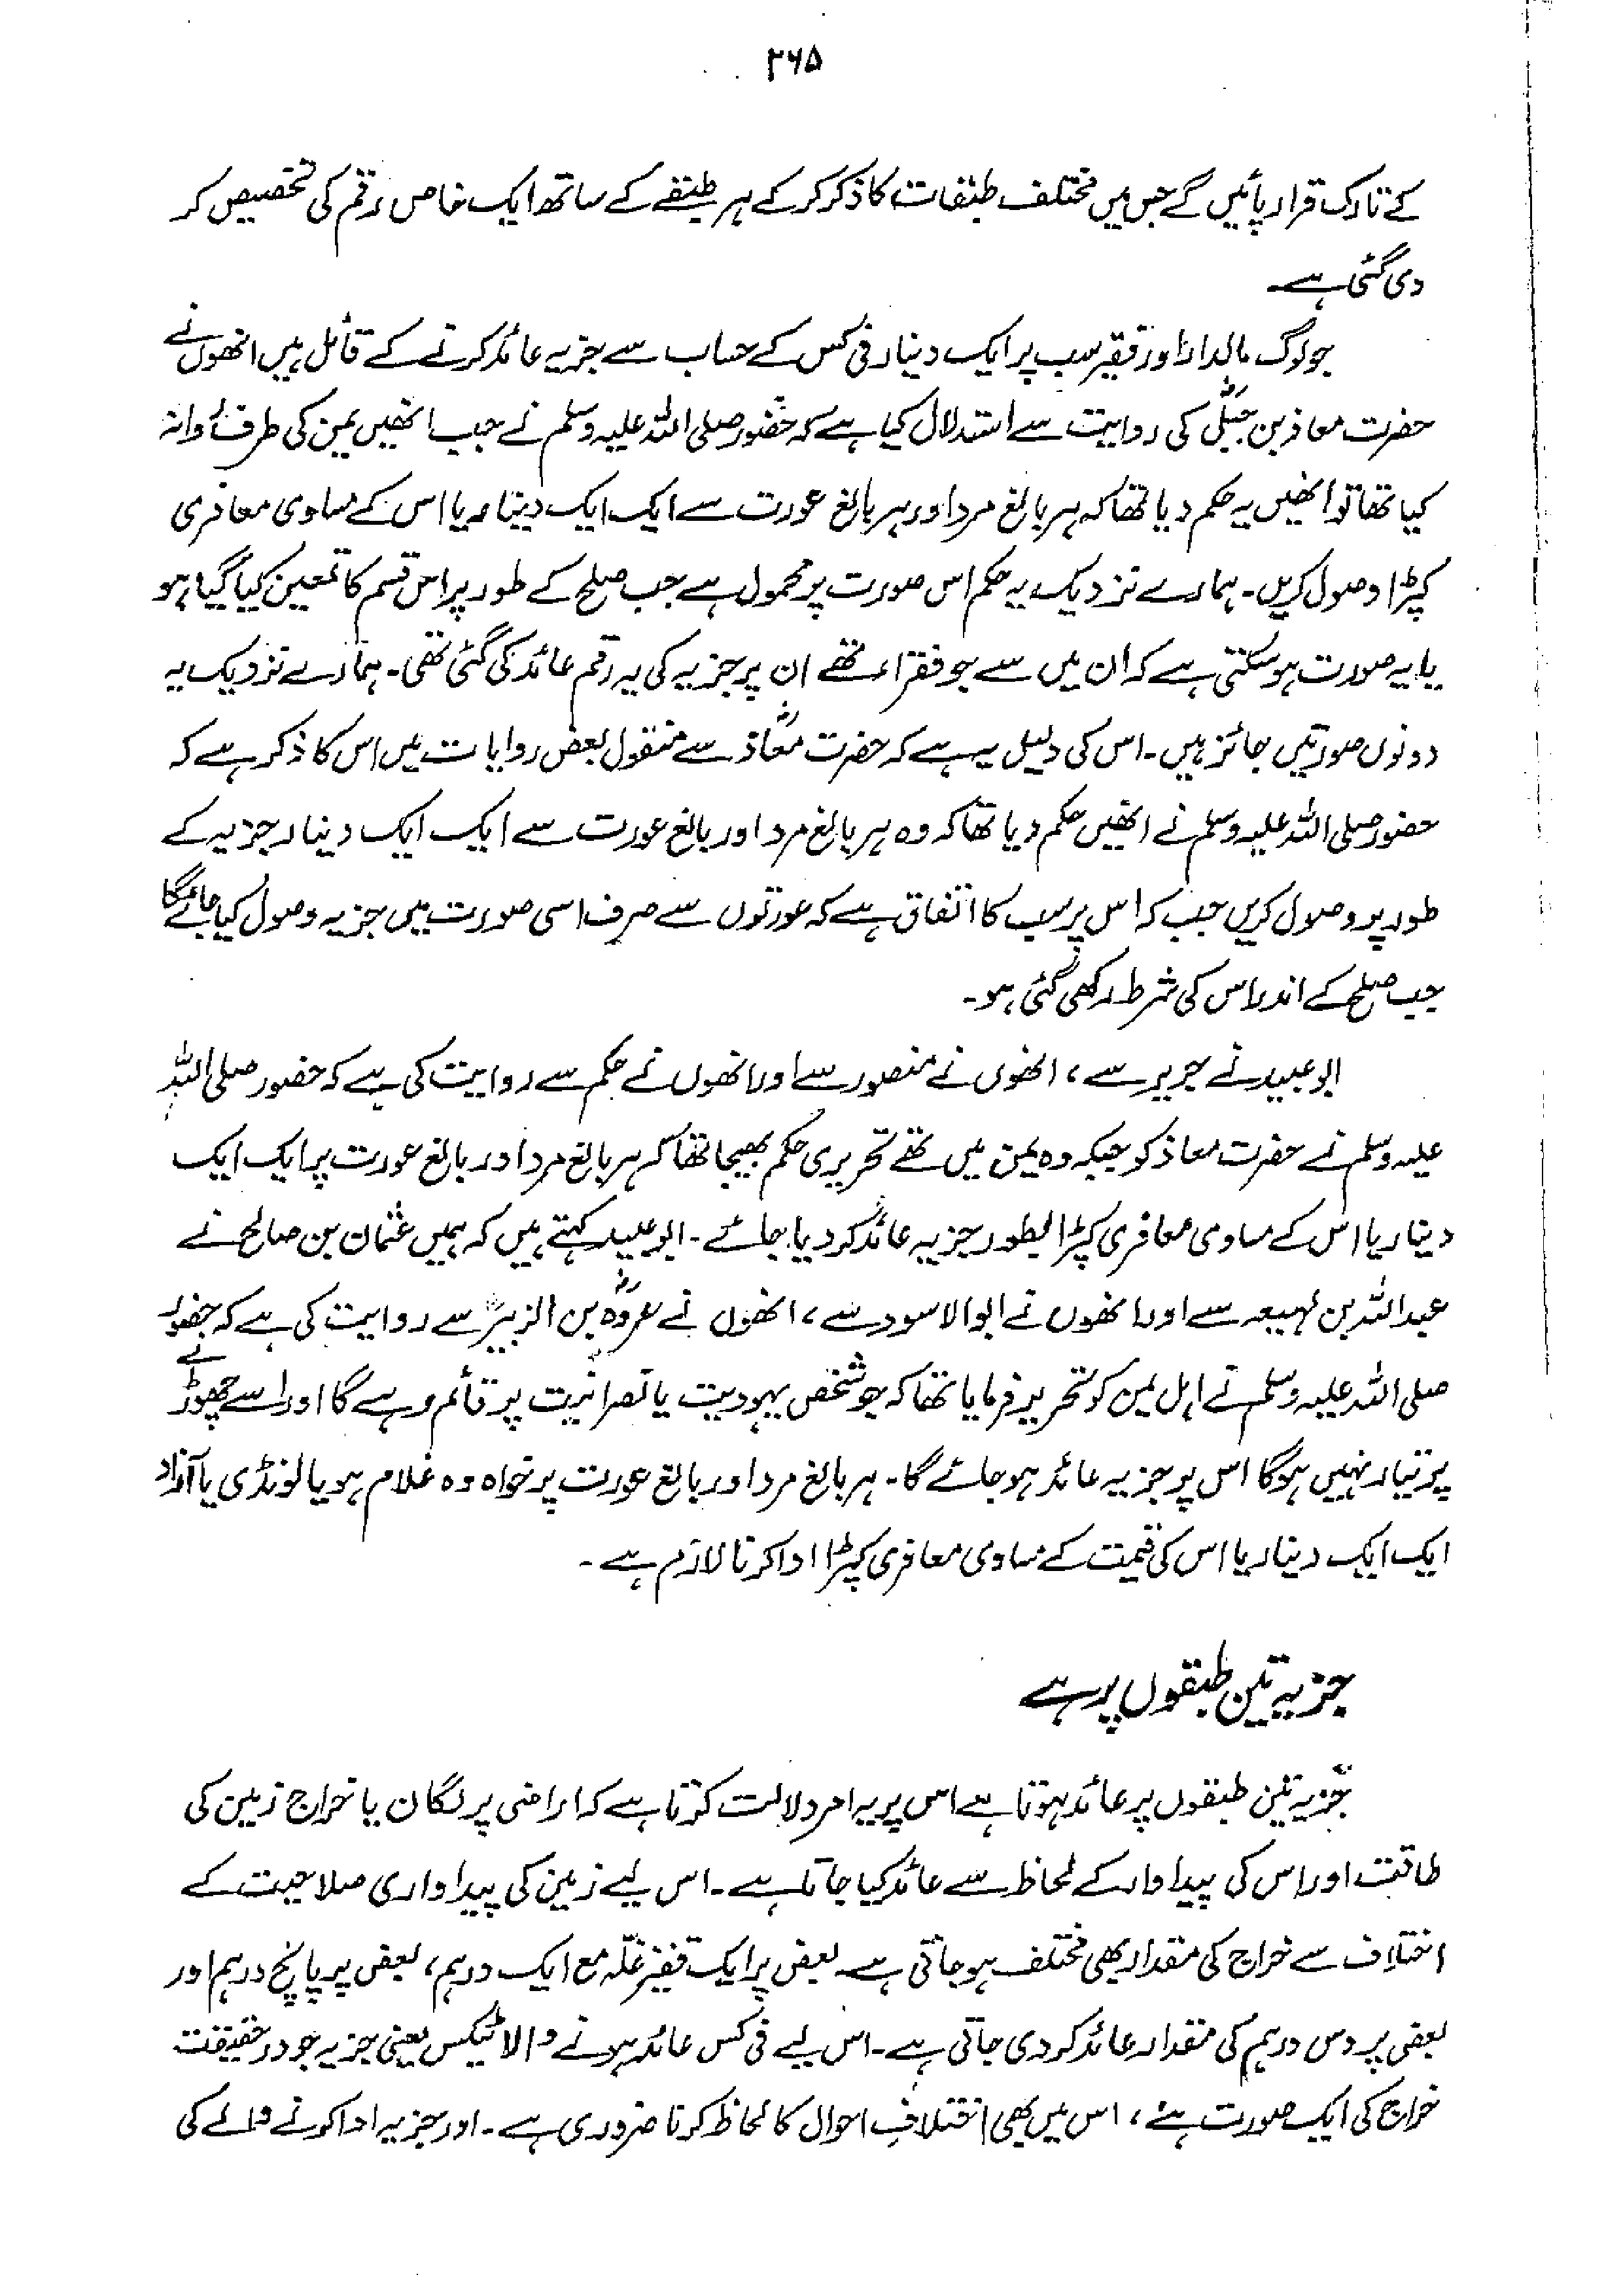 ۲۶۵
کے تارک قرار پائیں گے جس میں مختلف طبقات کا ذکر کر کے ہر طبقے کے ساتھ ایک خاص رقم کی تخصیص کر
دی گئی ہے۔
جو لوگ مالدار اور فقیر سب پر ایک دینار فی کس کے حساب سے جزیہ عائد کرنے کے قائل ہیں انھوں نے
حضرت معاذ بن جبلؓ کی روایت سے استدلال کیا ہے کہ حضور صلی اللہ علیہ وسلم نے جب انھیں یمن کی طرف روانہ
کیا تھا تو انھیں یہ حکم دیا تھا کہ ہر بالغ مرد اور ہر بالغ عورت سے ایک ایک دینار یا اس کے مساوی معافری
کپڑا وصول کریں۔ ہمارے نزدیک یہ حکم اس صورت پر محمول ہے جب صلح کے طور پر اس قسم کا تعین کیا گیا ہو
یا یہ صورت ہو سکتی ہے کہ ان میں سے جو فقراء تھے ان پر جزیہ کی یہ رقم عائد کی گئی تھی۔ ہمارے نزدیک یہ
دونوں صورتیں جائز ہیں۔ اس کی دلیل یہ ہے کہ حضرت معاذؓ سے منقول بعض روایات میں اس کا ذکر ہے کہ
حضور صلی اللہ علیہ وسلم نے انھیں حکم دیا تھا کہ وہ ہر بالغ مرد اور بالغ عورت سے ایک ایک دینار جزیہ کے
طور پر وصول کریں جب کہ اس پر سب کا اتفاق ہے کہ عورتوں سے صرف اسی صورت میں جزیہ وصول کیا جائے گا
جب صلح کے اندر اس کی شرط رکھی گئی ہو۔
ابوعبید نے جریر سے، انھوں نے منصور سے اور انھوں نے حکم سے روایت کی ہے کہ حضور صلی اللہ
علیہ وسلم نے حضرت معاذ کو جبکہ وہ یمن میں تھے تحریری حکم بھیجا تھا کہ ہر بالغ مرد اور بالغ عورت پر ایک ایک
دینار یا اس کے مساوی معافری کپڑا بطور جزیہ عائد کر دیا جائے۔ ابوعبید کہتے ہیں کہ ہمیں عثمان بن صالح نے
عبداللہ بن لہیعہ سے اور انھوں نے ابوالاسود سے، انھوں نے عروہؓ بن الزبیرؓ سے روایت کی ہے کہ حضور
صلی اللہ علیہ وسلم نے اہل یمن کو تحریر فرمایا تھا کہ جو شخص یہودیت یا نصرانیت پر قائم رہے گا اور اسے چھوڑنے
پر تیار نہیں ہوگا اس پر جزیہ عائد ہو جائے گا۔ ہر بالغ مرد اور بالغ عورت پر خواہ وہ غلام ہو یا لونڈی یا آزاد
ایک ایک دینار یا اس کی قیمت کے مساوی معافری کپڑا ادا کرنا لازم ہے۔
جزیہ تین طبقوں پر ہے
جزیہ تین طبقوں پر عائد ہوتا ہے اس پر یہ امر دلالت کرتا ہے کہ اراضی پر لگان یا خراج زمین کی
طاقت اور اس کی پیداوار کے لحاظ سے عائد کیا جاتا ہے۔ اس لیے زمین کی پیداواری صلاحیت کے
اختلاف سے خراج کی مقدار بھی مختلف ہو جاتی ہے۔ بعض پر ایک قفیز غلّہ مع ایک درہم، بعض پر پانچ درہم اور
بعض پر دس درہم کی مقدار عائد کر دی جاتی ہے۔ اس لیے فی کس عائد ہونے والا ٹیکس یعنی جزیہ جو در حقیقت
خراج کی ایک صورت ہے، اس میں بھی اختلافِ احوال کا لحاظ کرنا ضروری ہے۔ اور جزیہ ادا کرنے والے کی